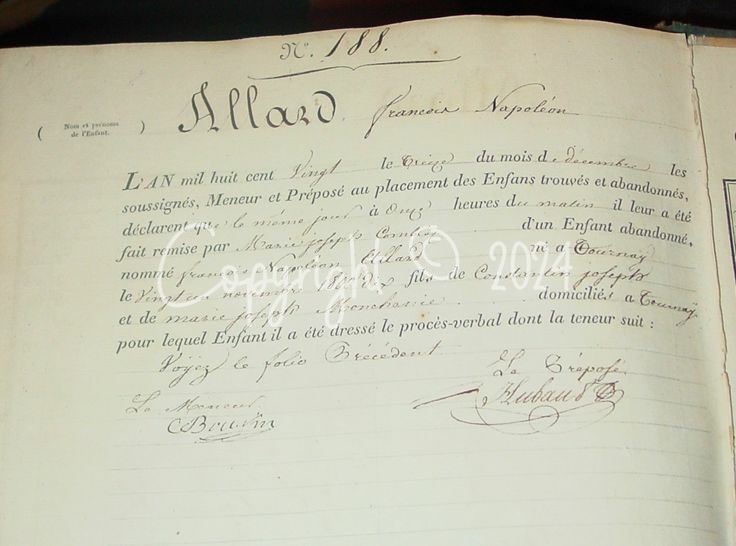 N.º 188.
( Nom et prénoms
de l'Enfant. ) Allard. francois Napoléon
L'AN mil huit cent Vingt le treize du mois de décembre les
soussignés, Meneur et Préposé au placement des Enfans trouvés et abandonnés,
déclarent que le même jour à onze heures du matin il leur a été
fait remise par Marie joseph d'un Enfant abandonné,
nommé françois Napoléon Allard né a Tournay
le Vingt un novembre fils de Constantin joseph
et de marie joseph domiciliés a Tournay
pour lequel Enfant il a été dressé le procès-verbal dont la teneur suit :
Voyez le folio Précédent
Le Meneur Le Préposé
Copyright © 2024